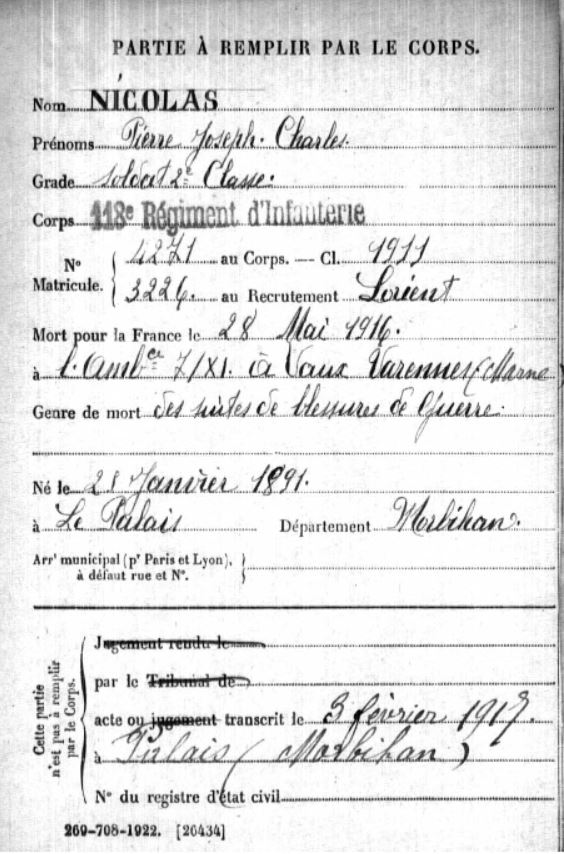 PARTIE À REMPLIR PAR LE CORPS.
Nom NICOLAS
Prénoms Pierre Joseph Charles.
Grade soldat 2e Classe.
Corps 118e Régiment d'Infanterie
No Matricule. { 4271 au Corps. — Cl. 1911
3226. au Recrutement Lorient
Mort pour la France le 28 Mai 1916.
à l'Ambce 7/XI. à Vaux Varennes (Marne)
Genre de mort des suites de blessures de Guerre.
Né le 28 Janvier 1891.
à Le Palais Département Morbihan.
Arrt municipal (pr Paris et Lyon), à défaut rue et No. }
Cette partie n'est pas à remplir par le Corps.
Jugement rendu le
par le Tribunal de
acte ou jugement transcrit le 3 février 1917.
à Palais (Morbihan)
No du registre d'état civil
269-708-1922. [26434]